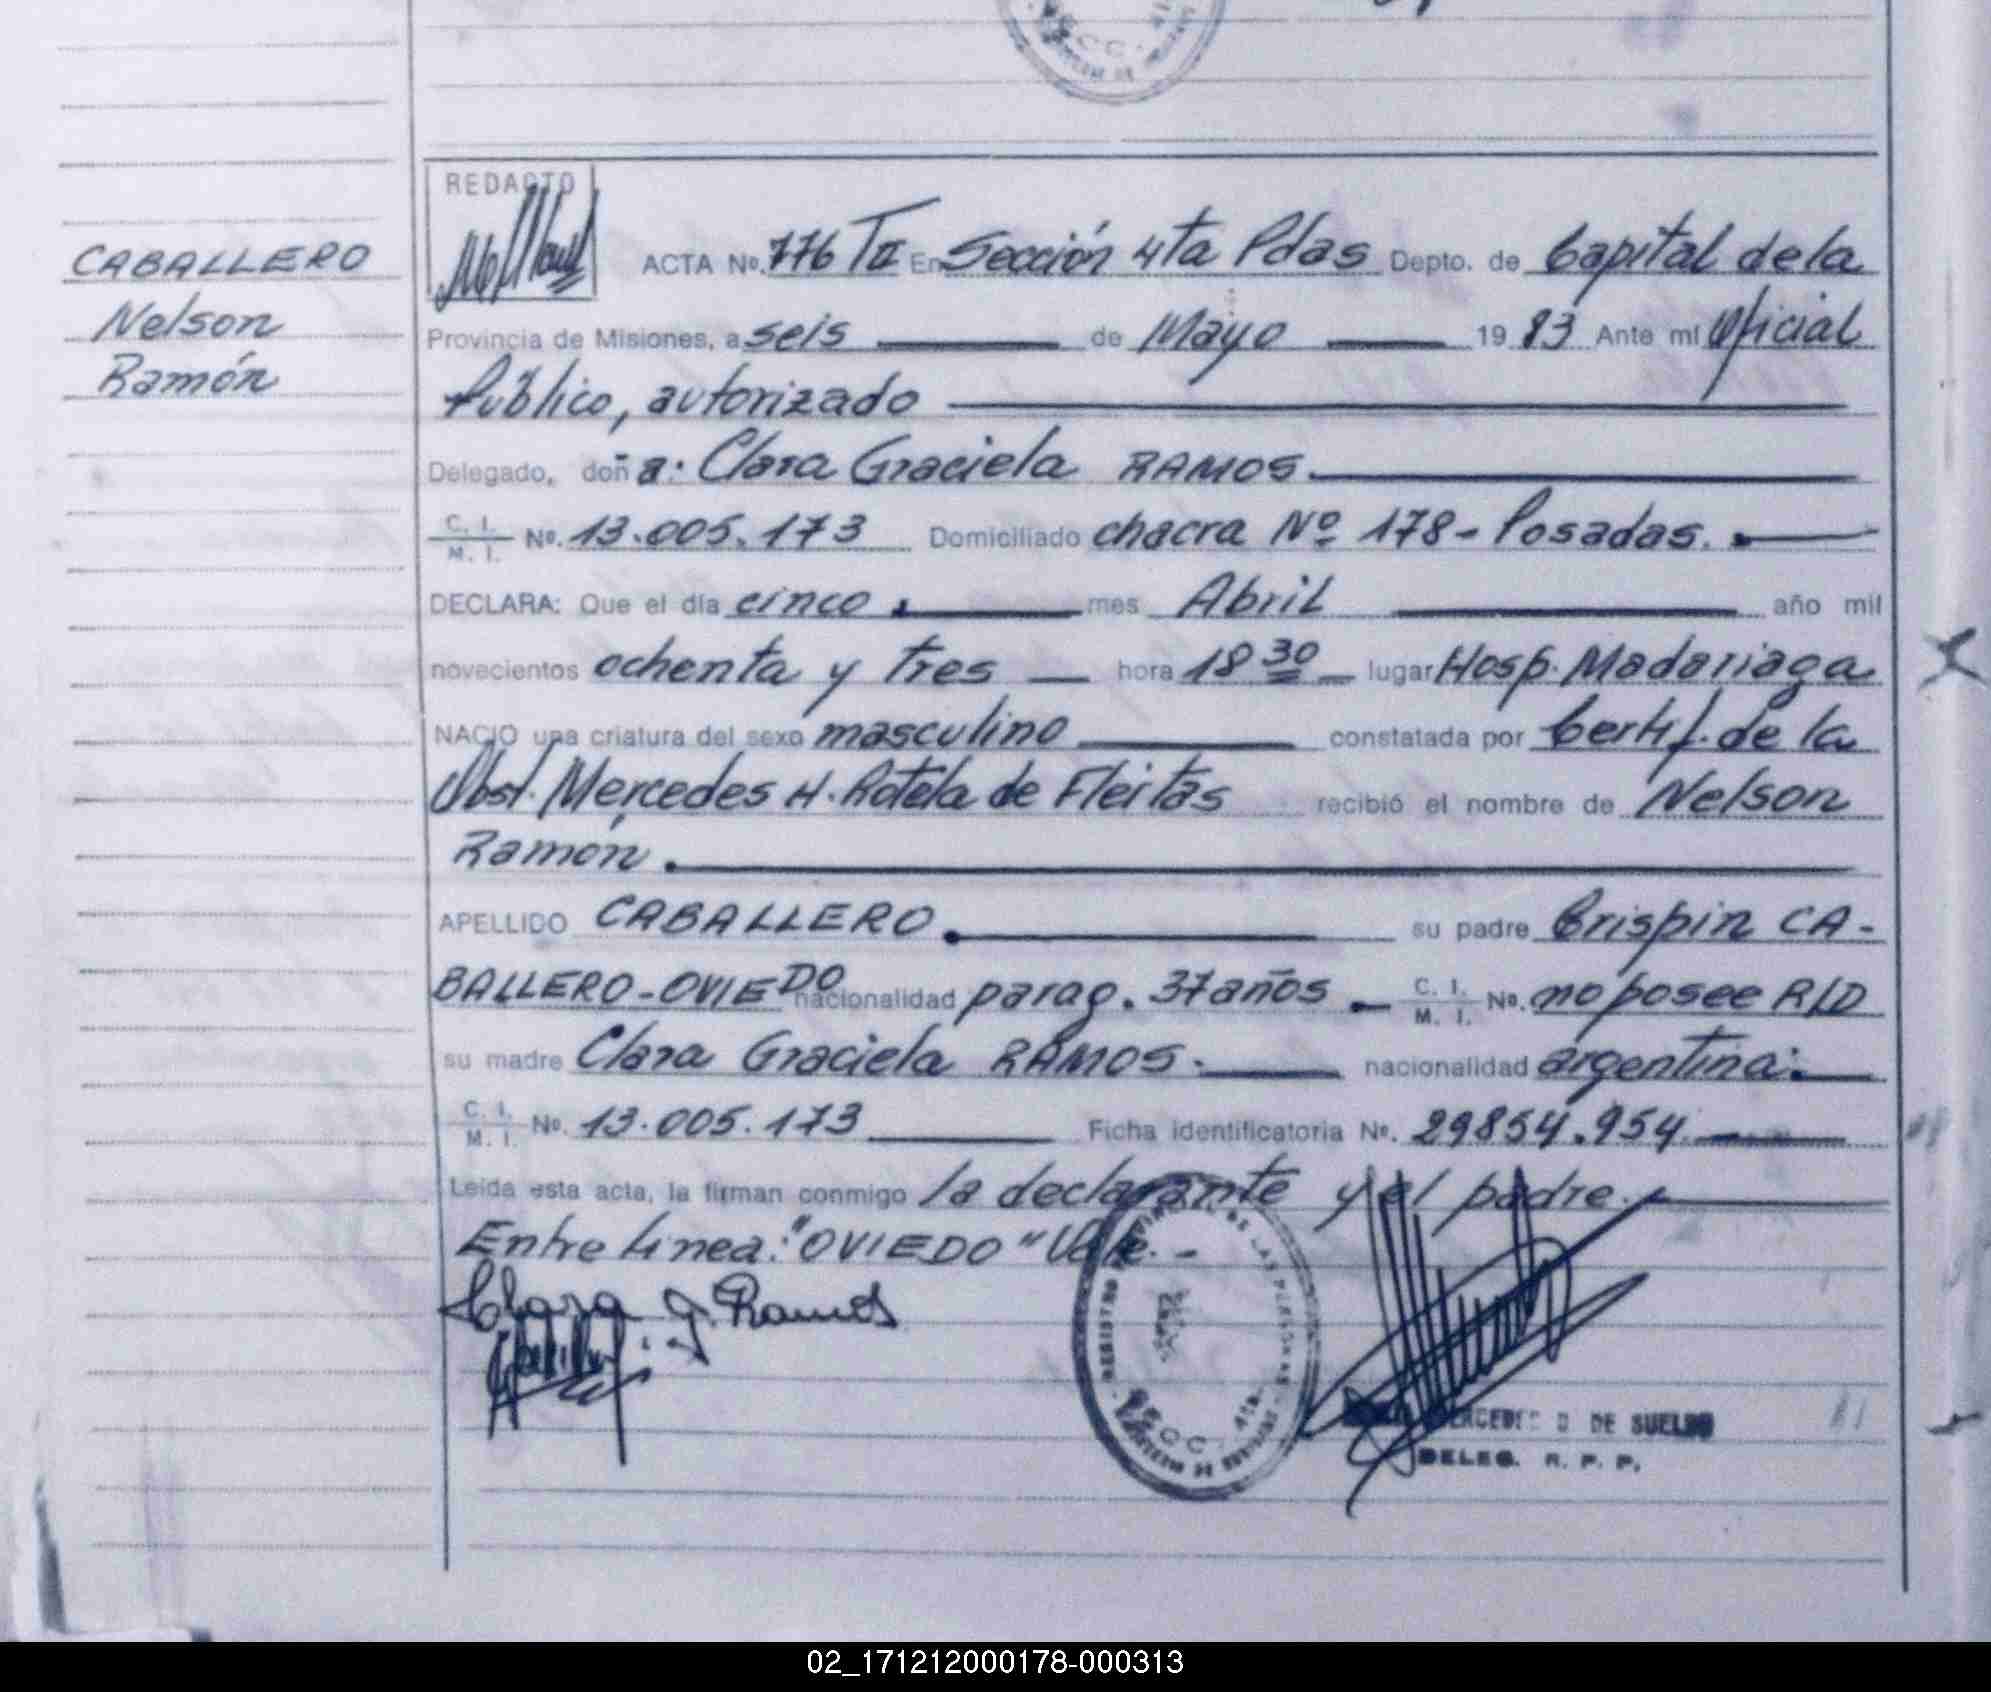 REDACTO
CABALLERO
Nelson
Ramón
ACTA No. 776 TII En Sección 4ta Pdas Depto. de Capital de la
Provincia de Misiones, a seis de Mayo 19 83 Ante mí Oficial
Público, autorizado
Delegado, doña: Clara Graciela RAMOS.
C. I. M. I. No. 13.005.173 Domiciliado chacra Nº 178 - Posadas.
DECLARA: Que el día cinco mes Abril año mil
novecientos ochenta y tres hora 18 30 lugar Hosp. Madariaga
NACIO una criatura del sexo masculino constatada por Certif. de la
Obst. Mercedes H. Rotela de Fleitas recibió el nombre de Nelson
Ramón.
APELLIDO CABALLERO. su padre Crispin CA-
BALLERO-OVIEDO nacionalidad parag. 37 años C. I. M. I. No. no posee R/D
su madre Clara Graciela RAMOS. nacionalidad argentina.
C. I. M. I. No. 13.005.173 Ficha identificatoria No. 29854.954
Leída esta acta, la firman conmigo la declarante y el padre.
Entre línea: "OVIEDO" Vale. -
Clara G. Ramos
REGISTRO PROVINCIAL DE LAS PERSONAS
SECC. 4ta
PROVINCIA DE MISIONES
MERCEDES D DE SUELDO
DELEG. R. P. P.
02_171212000178-000313